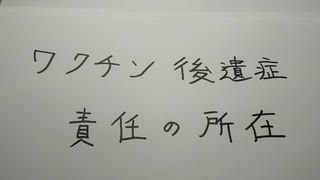 ワクチン後遺症
責任の所在